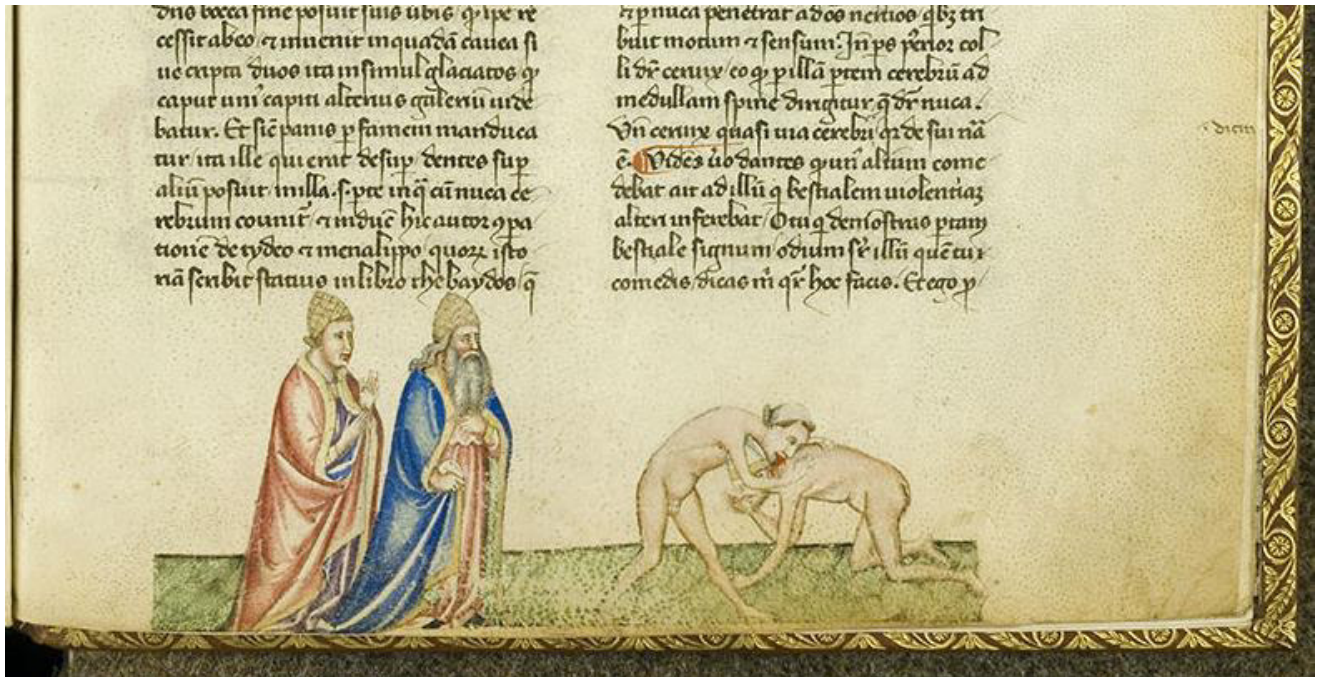 dn̄s bocca fine posuit suis ubis. ꝙ ip̄e re
cessit ab eo ⁊ inuenit in quadā cauea si
ue cripta duos ita insimul glaciatos ꝙ
caput uni᾽ capiti alterius galeriū uide
batur. Et sic̄ panis ꝑ famem manduca
tur, ita ille qui erat desuꝑ dentes suꝑ
aliū posuit, in illa .s. ꝑte in q̄ cū nuca ce
rebrum cōuuit᷑, ⁊ induc̄ hic autor ꝯpa
tionē de tydeo ⁊ menalippo, quoꝝ isto
riā scribit statius in libro thebaydos, q̄
⁊ ꝑ nuca penetrat ad os neruos qbꝫ tri
buit motum ⁊ sensum. In ꝑs ꝑerior col
li dr̄ ceruix, eo ꝙ ꝑ illā ꝑtem cerebrū ad
medullam spine dirigitur, q̄ dr̄ nuca.
Vn̄ ceruix quasi uia cerebri qr̄ de sui nā
ē. Vidēs ūo dantes ꝙ un᾽ alium come
debat ait ad illū q̇ bestialem uiolentiaꝫ
alteri inferebat, O tu q̇ demōstras ꝑ tam
bestiale signum odium sr̄ illū quē tu
comedis, dicas m̄ qr̄ hoc facis. Et ego ꝑ
dicin